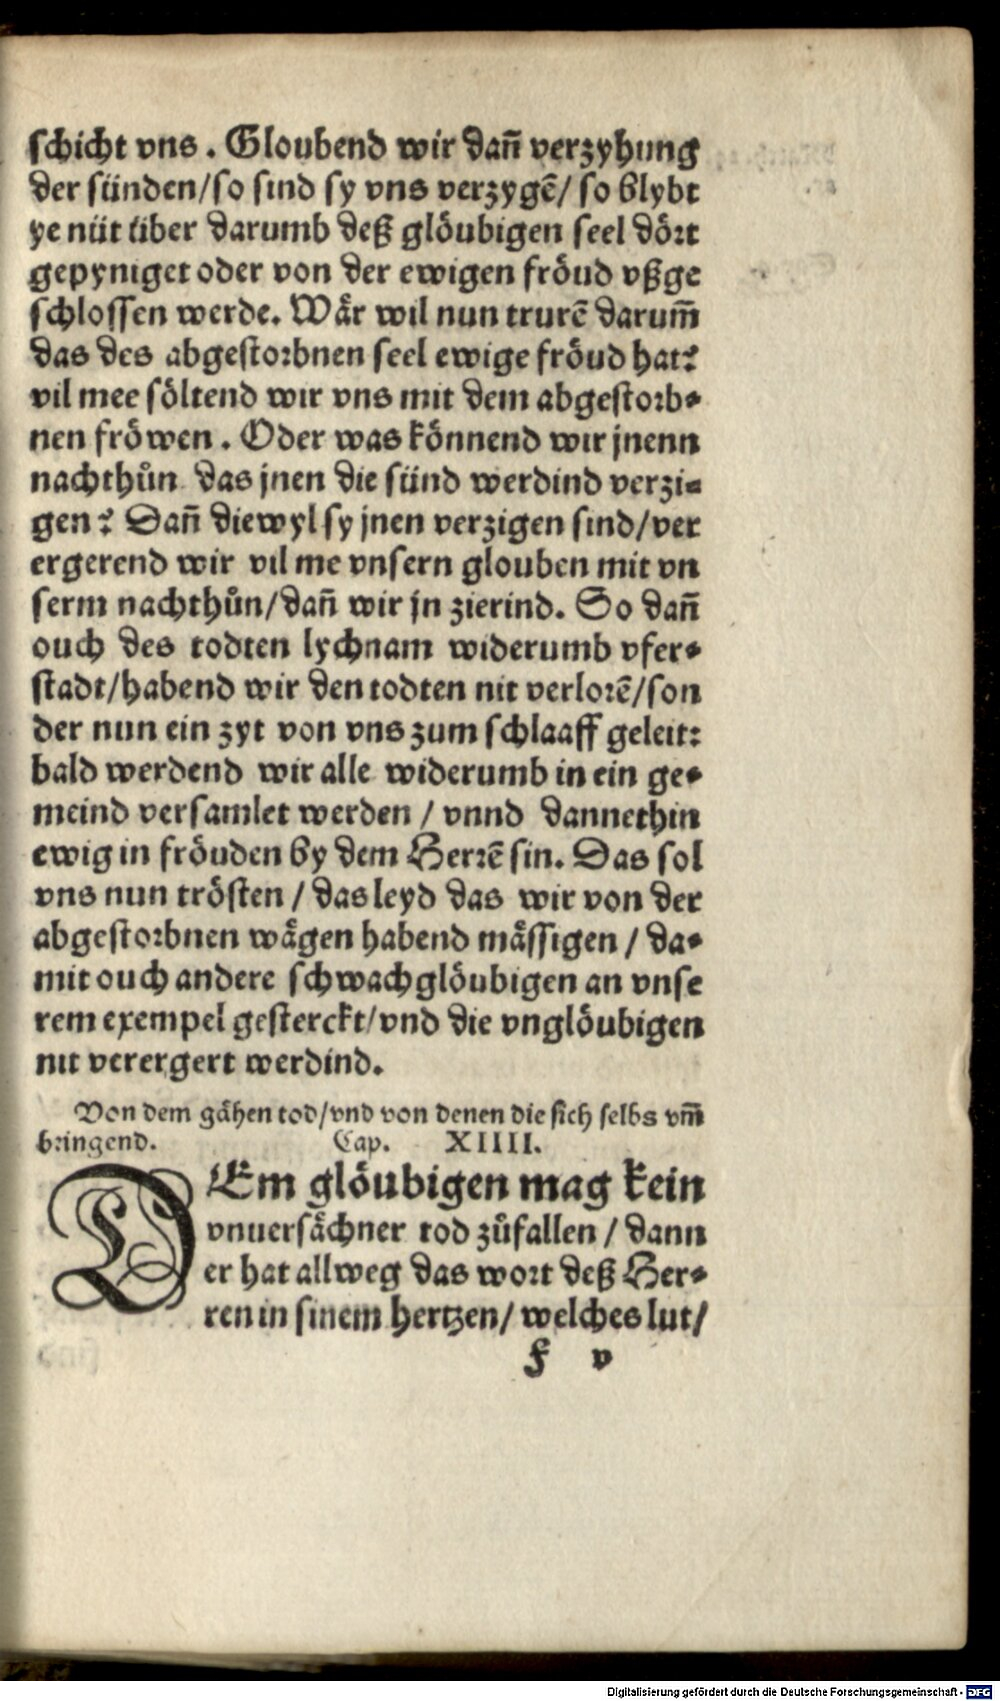 schicht vns. Gloubend wir dañ verzyhung
der sünden/so sind sy vns verzygẽ/ so blybt
ye nüt über darumb deß glöubigen seel dört
gepyniget oder von der ewigen fröud vßge
schlossen werde. Wår wil nun trurẽ darum̃
das des abgestorbnen seel ewige fröud hat?
vil mee söltend wir vns mit dem abgestorb-
nen fröwen. Oder was könnend wir jnenn
nachthůn das jnen die sünd werdind verzi-
gen? Dañ diewyl sy jnen verzigen sind/ver
ergerend wir vil me vnsern glouben mit vn
serm nachthůn/dañ wir jn zierind. So dañ
ouch des todten lychnam widerumb vfer-
stadt/habend wir den todten nit verlorẽ/son
der nun ein zyt von vns zum schlaaff geleit:
bald werdend wir alle widerumb in ein ge-
meind versamlet werden / vnnd dannethin
ewig in fröuden by dem Herrẽ sin. Das sol
vns nun trösten / das leyd das wir von der
abgestorbnen wägen habend mässigen / da-
mit ouch andere schwachglöubigen an vnse
rem exempel gesterckt/vnd die vnglöubigen
nit verergert werdind.
Von dem gähen tod/vnd von denen die sich selbs vm̃
bringend. Cap. XIIII.
DEm glöubigen mag kein
vnuersächner tod zůfallen / dann
er hat allweg das wort deß Her-
ren in sinem hertzen/ welches lut/
f v
Digitalisierung gefördert durch die Deutsche Forschungsgemeinschaft - DFG